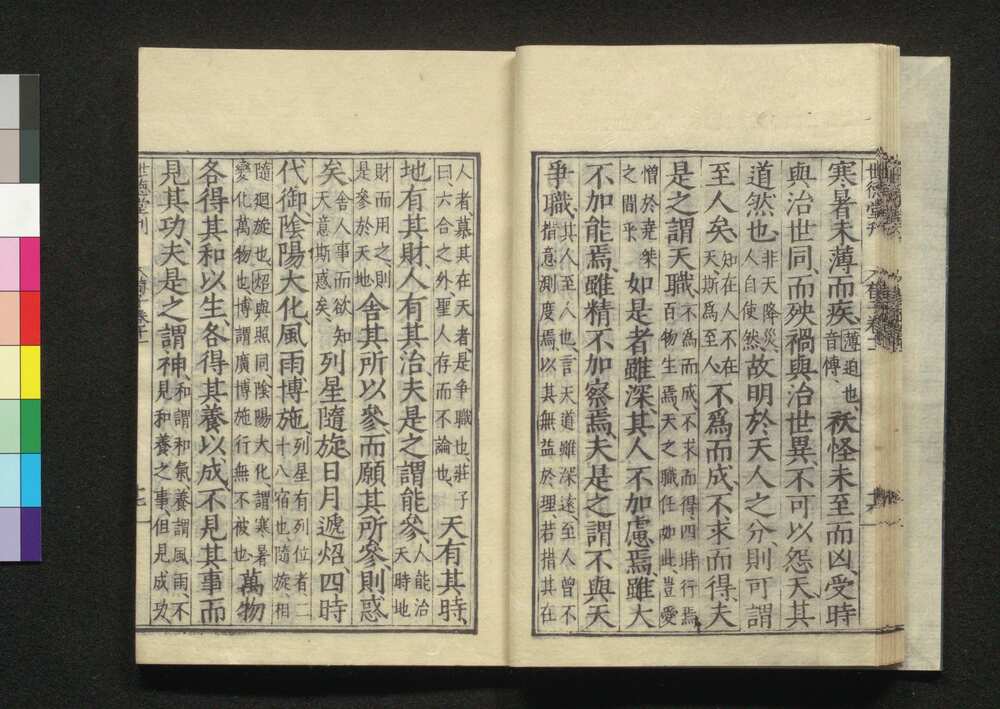 寒暑未薄而疾、薄迫也、音傳祅怪未至而凶、受時
與治世同、而殃禍與治世異、不可以怨天、其
道然也、非天降災、人自使然、故明於天人之分、則可謂
至人矣、知在人不在天、斯爲至人、不爲而成、不求而得、夫
是之謂天職、不爲而成、不求而得、四時行焉、百物生焉、天之職任如此、豈愛
憎於堯桀之間乎如是者雖深、其人不加慮焉、雖大
不加能焉、雖精不加察焉、夫是之謂不與天
爭職、其人至人也、言天道雖深遠、至人曾不措意測度焉、以其無益於理、若措其在
人者、慕其在天者、是爭職也、莊子曰、六合之外、聖人存而不論也、天有其時、
地有其財、人有其治、夫是之謂能參、人能治天時地
財而用之、則是參於天地舍其所以參而願其所參、則惑
矣舍人事而欲知天意斯惑矣、列星隨旋、日月遞炤、四時
代御、陰陽大化、風雨博施、列星有列位者二十八宿也、隨旋、相
隨廻旋也、炤與照同、陰陽大化、謂寒暑變化萬物也、博謂廣博施行無不被也、萬物
各得其和以生、各得其養以成、不見其事而
見其功、夫是之謂神、和謂和氣、養謂風雨、不見和養之事、但見成功
世德堂刊